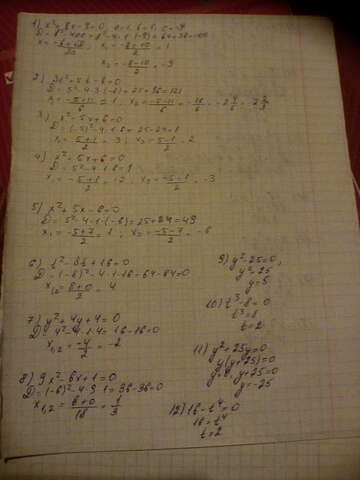 1) x²+8x-9=0, a=1, b=8, c=-9
D=b²-4ac=8²-4·1·(-9)=64+36=100
x₁=(-8+10)/2=1
x₂=(-8-10)/2=-9
2) 3x²+5x-8=0
D=5²-4·3·(-8)=25+96=121
x₁=(-5+11)/6=1, x₂=(-5-11)/6=-16/6=-2 4/6=-2 2/3
3) x²-5x+6=0
D=(-5)²-4·1·6=25-24=1
x₁=(5+1)/2=3; x₂=(5-1)/2=2
4) x²+5x+6=0
D=5²-4·1·6=1
x₁=(-5+1)/2=-2 x₂=(-5-1)/2=-3
5) x²+5x-6=0
D=5²-4·1·(-6)=25+24=49
x₁=(-5+7)/2=1; x₂=(-5-7)/2=-6
6) t²-8t+16=0
D=(-8)²-4·1·16=64-64=0
x₁,₂=(8+0)/2=4
7) y²+4y+4=0
D=4²-4·1·4=16-16=0
x₁,₂=-4/2=-2
8) 9x²-6x+1=0
D=(-6)²-4·9·1=36-36=0
x₁,₂=(6+0)/18=1/3
9) y²-25=0,
y²=25
y=5
10) t³-8=0
t³=8
t=2
11) y²+25y=0
y(y+25)=0
y+25=0
y=-25
12) 16-t⁴=0
16=t⁴
t=2